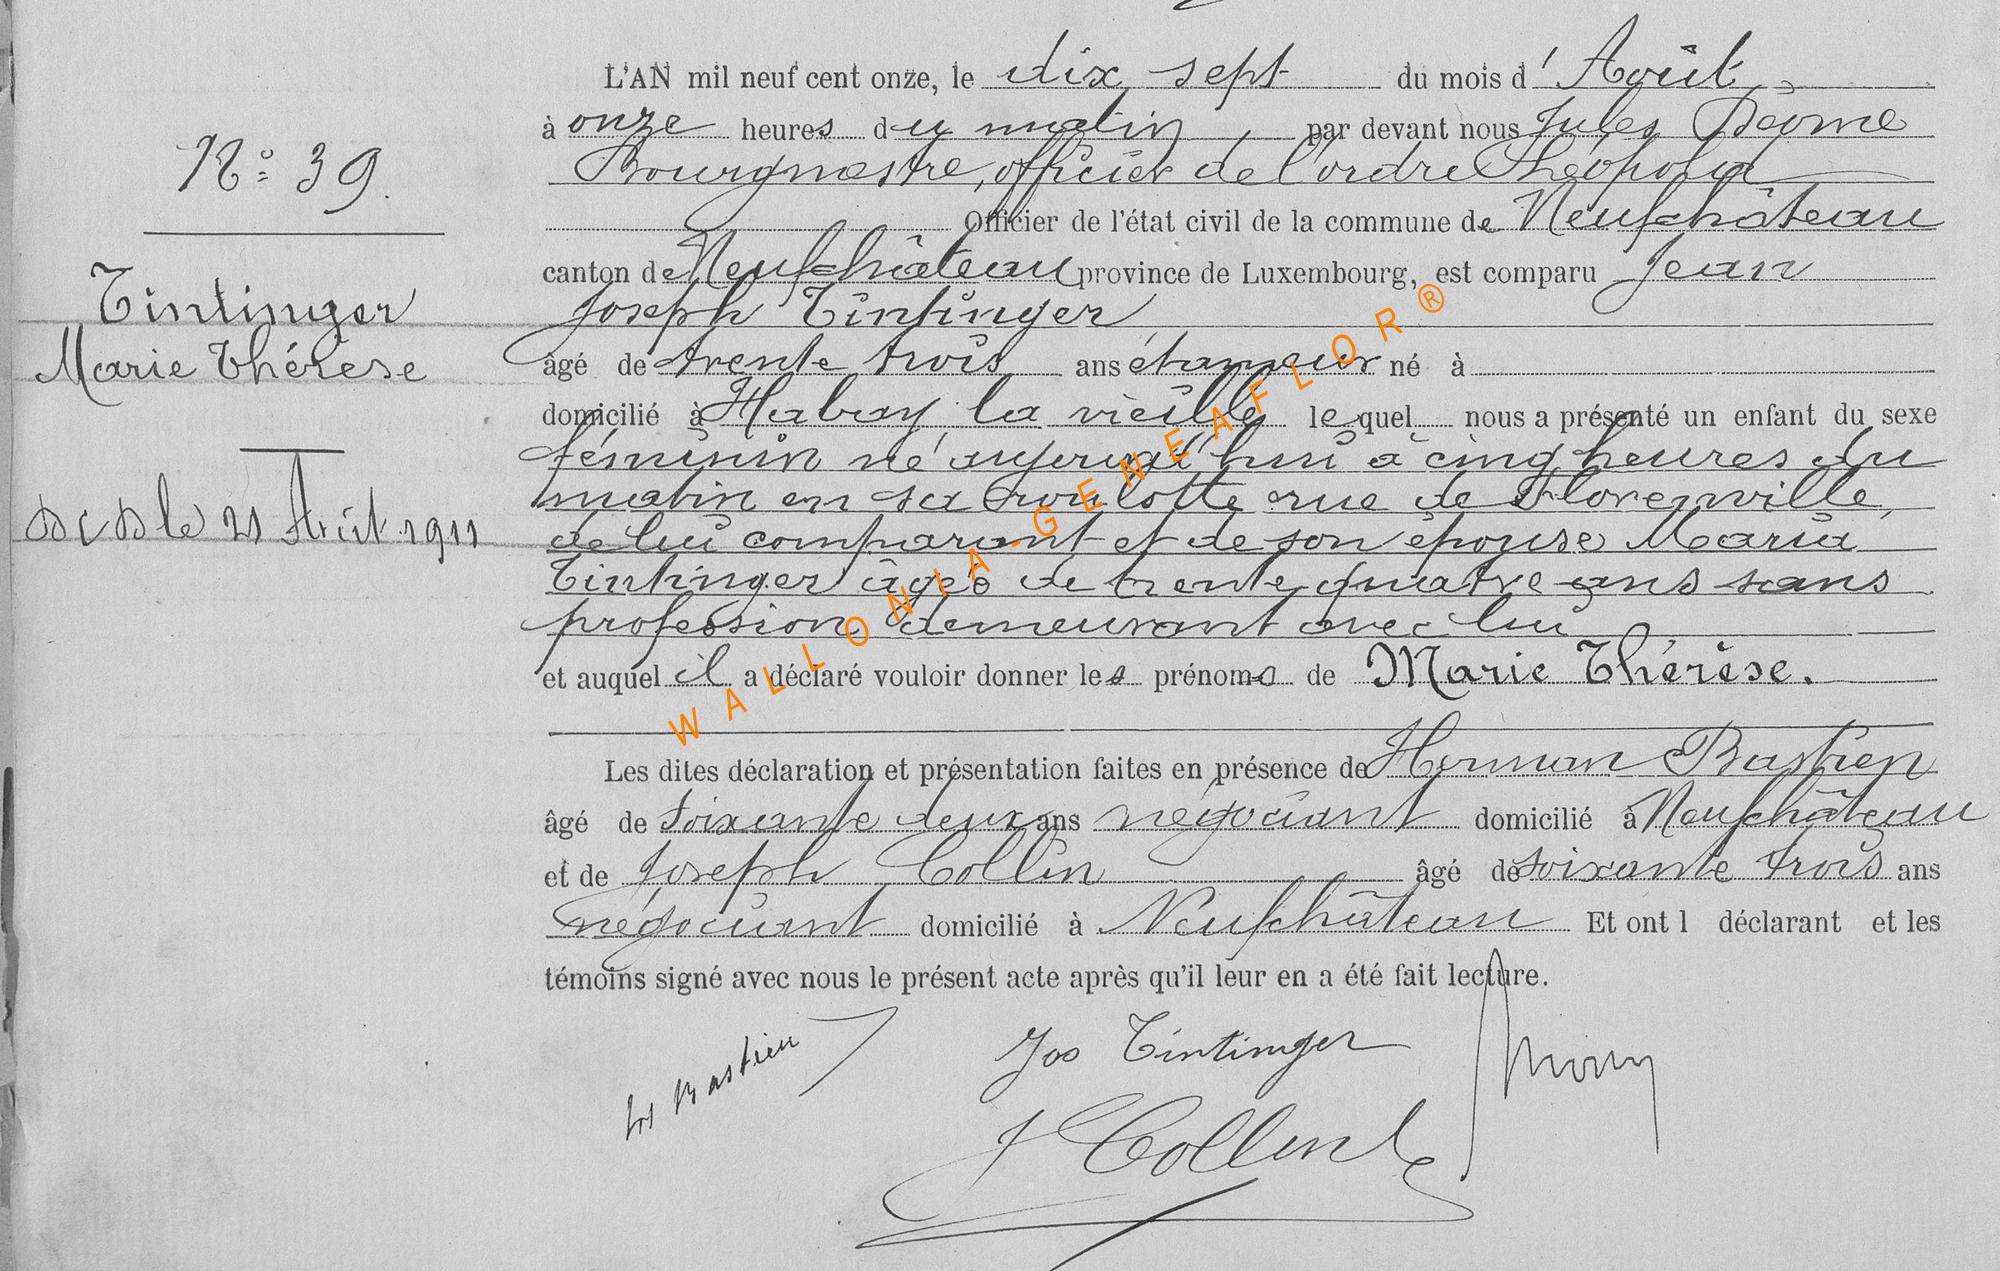 N° 39.
Tintinger
Marie Thérèse
DCD le 21 Août 1911
L'AN mil neuf cent onze, le dix sept du mois d'Août,
à onze heures du matin, par devant nous Jules
Bourgmestre, officier de l'ordre Léopold
Officier de l'état civil de la commune de Neufchâteau
canton de Neufchâteau province de Luxembourg, est comparu Jean
Joseph Tintinger
âgé de trente trois ans étameur né à
domicilié à Habay la vieille lequel nous a présenté un enfant du sexe
féminin né aujourd'hui à cinq heures du
matin en sa roulotte rue de Florenville,
de lui comparant et de son épouse Maria
Tintinger âgée de trente quatre ans sans
profession demeurant avec lui
et auquel il a déclaré vouloir donner les prénoms de Marie Thérèse.
Les dites déclaration et présentation faites en présence de Herman Bastien
âgé de soixante deux ans négociant domicilié à Neufchâteau
et de Joseph Collin âgé de soixante trois ans
négociant domicilié à Neufchâteau Et ont l déclarant et les
témoins signé avec nous le présent acte après qu'il leur en a été fait lecture.
Bastien
Jos Tintinger
J Collin
WALLONIA-GENEAFLOR®